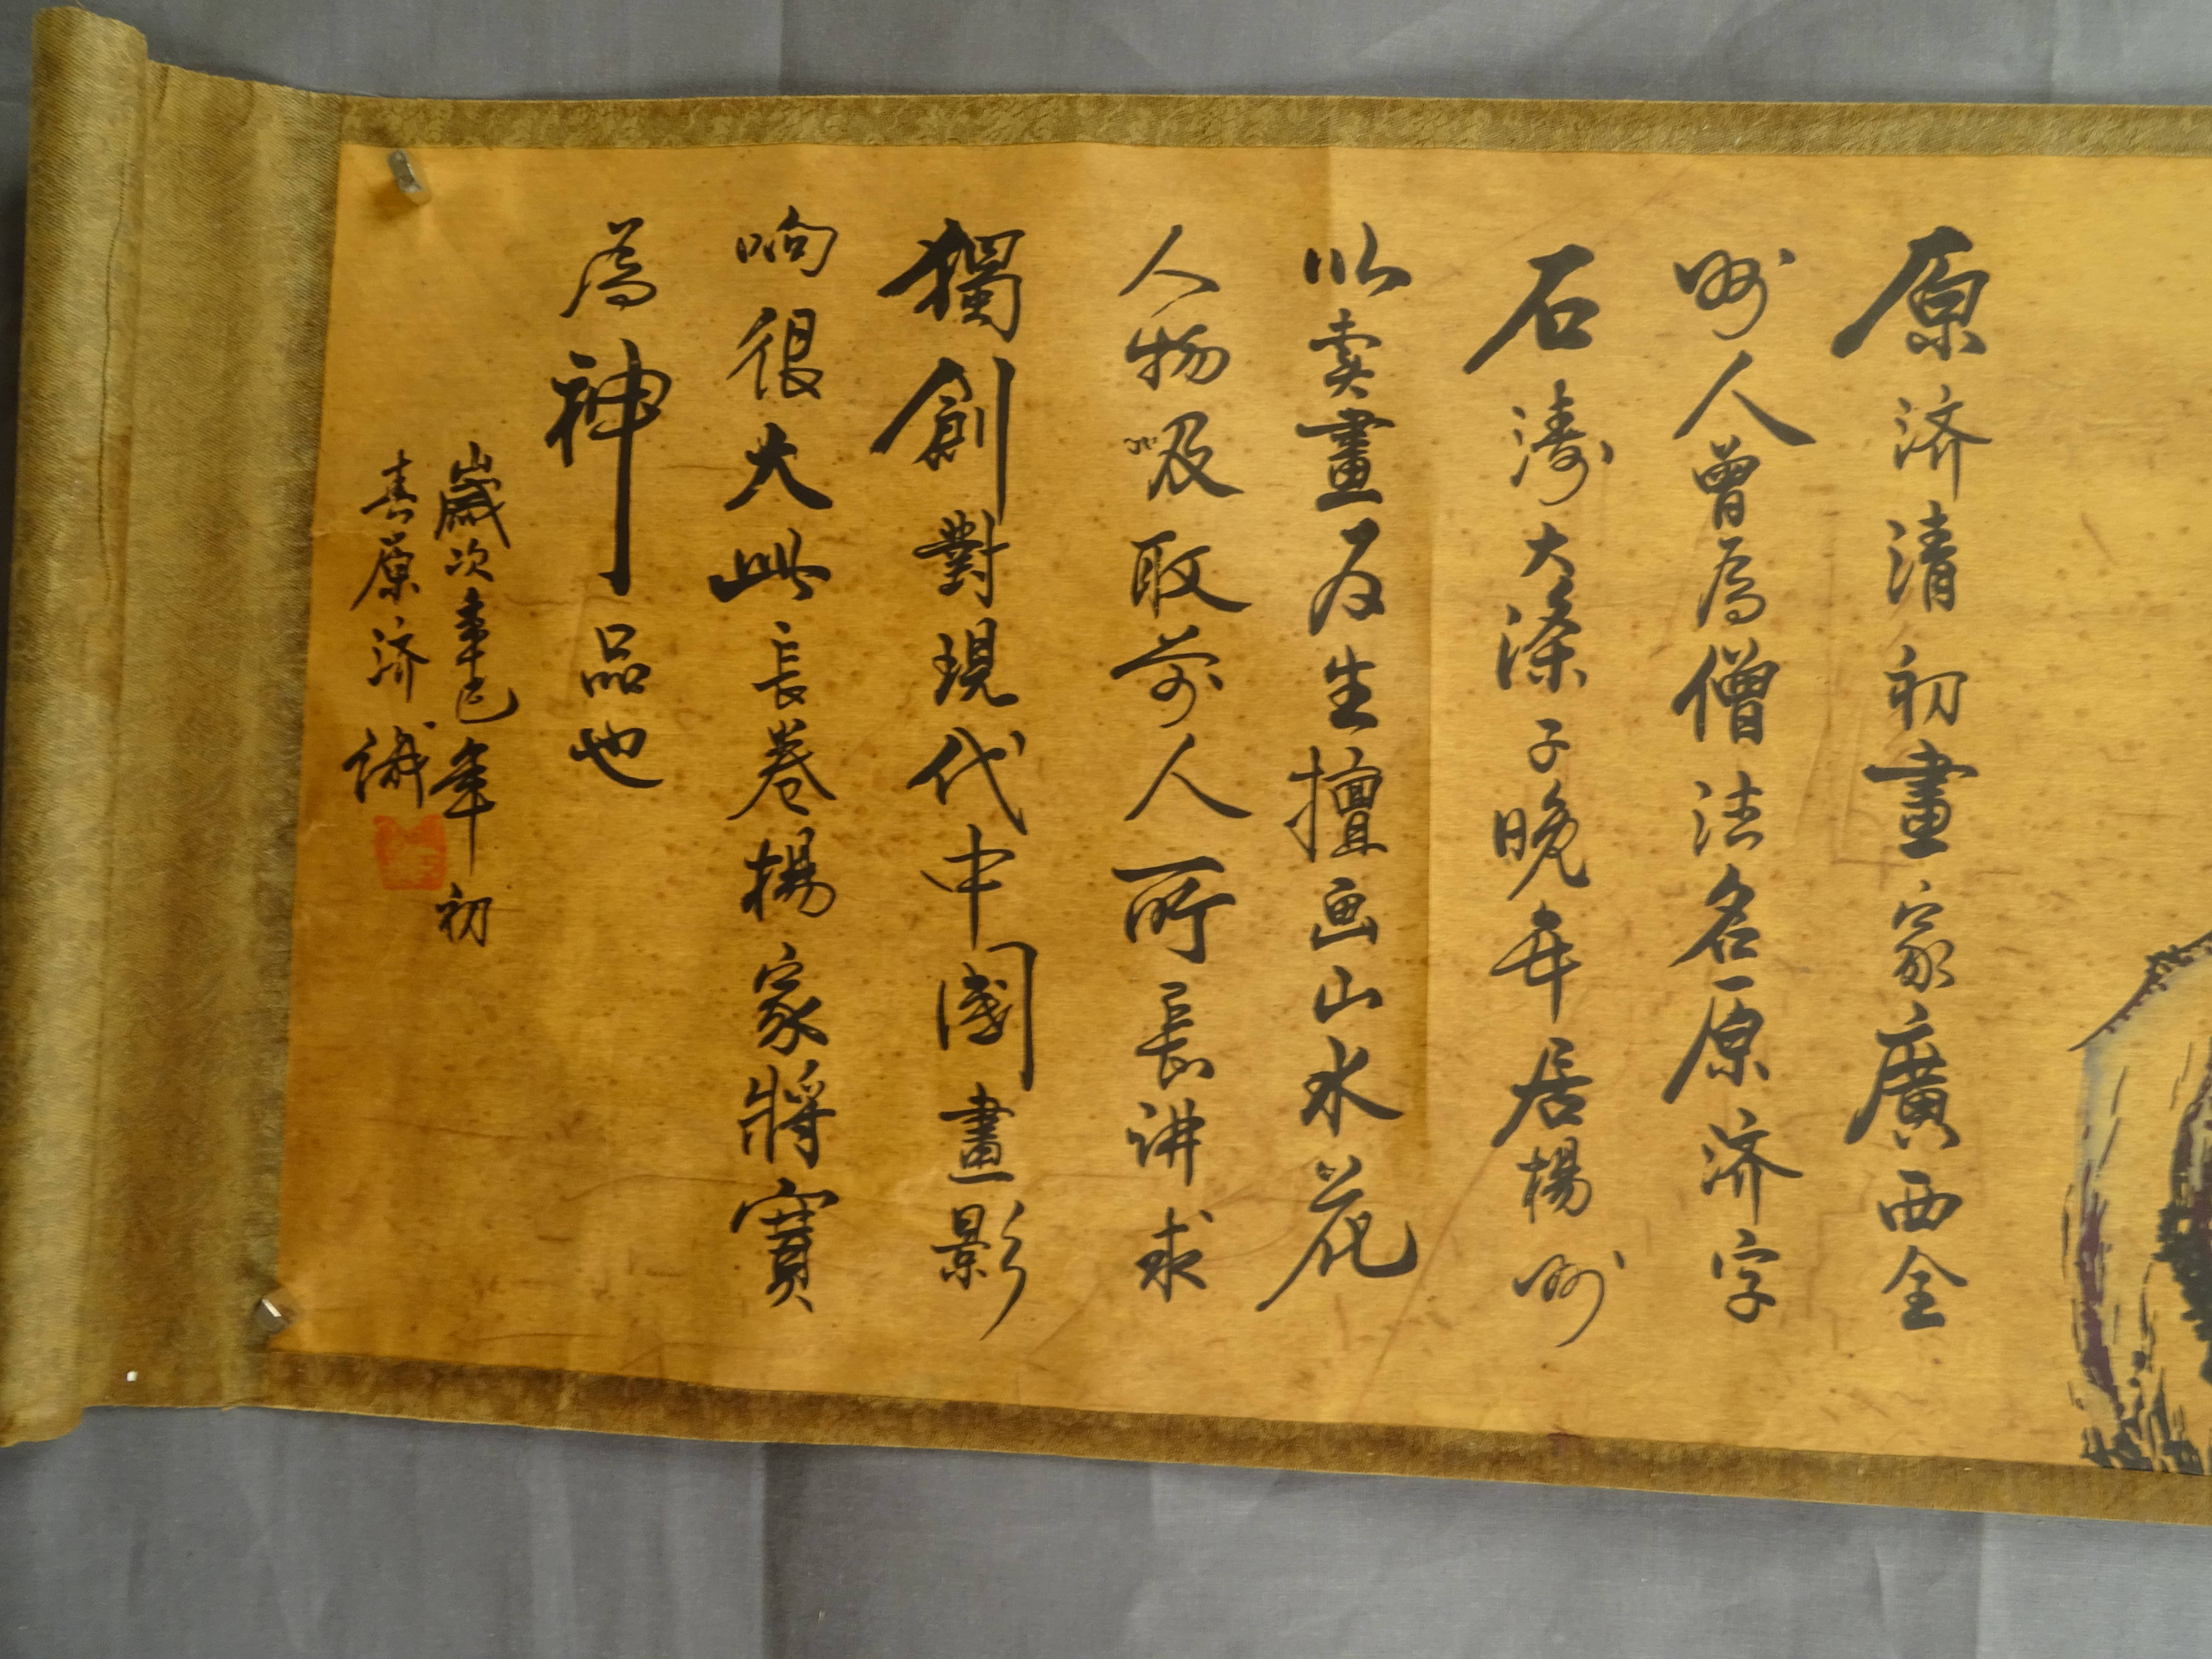 原济清初畫家廣西全
州人曾為僧法名原济字
石涛大滌子晚年居楊州
以卖畫为生擅画山水花
人物吸取前人所長讲求
獨創對現代中國畫影
响很大此長卷楊家將實
為神品也
歲次辛巳年初
喜原济識